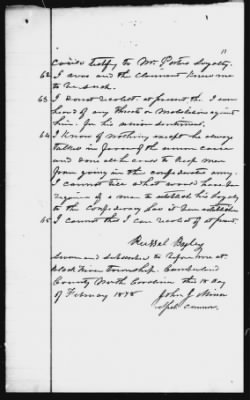 11
testify to Mr. Peters Loyalty.
62 I was and the Claimant knew me
to be such.
63 I do not recolect at present tho I
heard of any threats or molestation against
him. for his union sentiment,
64 I know of nothing except he always
talked in favor of the union cause
and done all he could to keep men
from going in the confederate army.
I cannot tell what would have been
required of a man to establish his loyalty
to the confederacy
65 I cannot that I can recolect of at present.
Russel
Sworn and Subscribed to before me at
Black River township. Cumberland
County North Carolina this 18 day
of February 1875
John J Minor
Spcl. Commr.